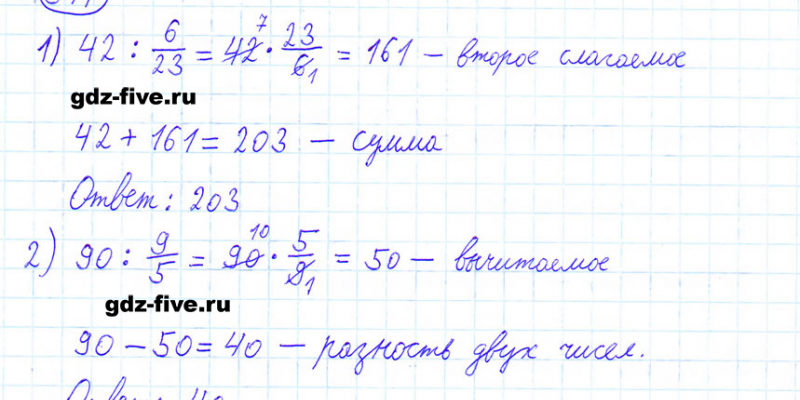 1) 42 : 6/23 = 42 7 · 23/6 1 = 161 – второе слагаемое
gdz-five.ru
42 + 161 = 203 – сумма
Ответ: 203
2) 90 : 9/5 = 90 10 · 5/9 1 = 50 – вычитаемое
gdz-five.ru
90 – 50 = 40 – разность двух чисел.